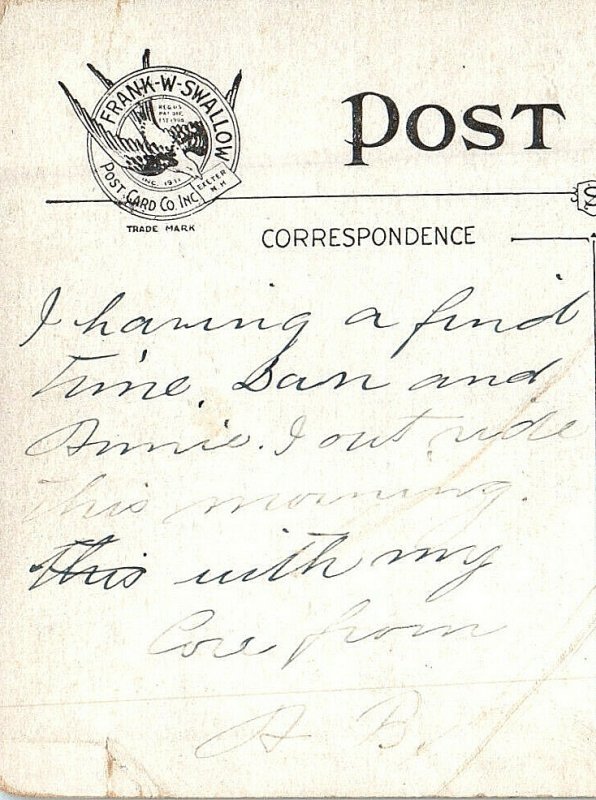 FRANK-W-SWALLOW
REG. U.S.
PAT. OFF.
INC. 1917
EXETER
N.H.
POST CARD CO. INC
TRADE MARK
POST
CORRESPONDENCE
I having a find
time. Dan and
Annie. I out ride
this morning.
This with my
Love from
A B.